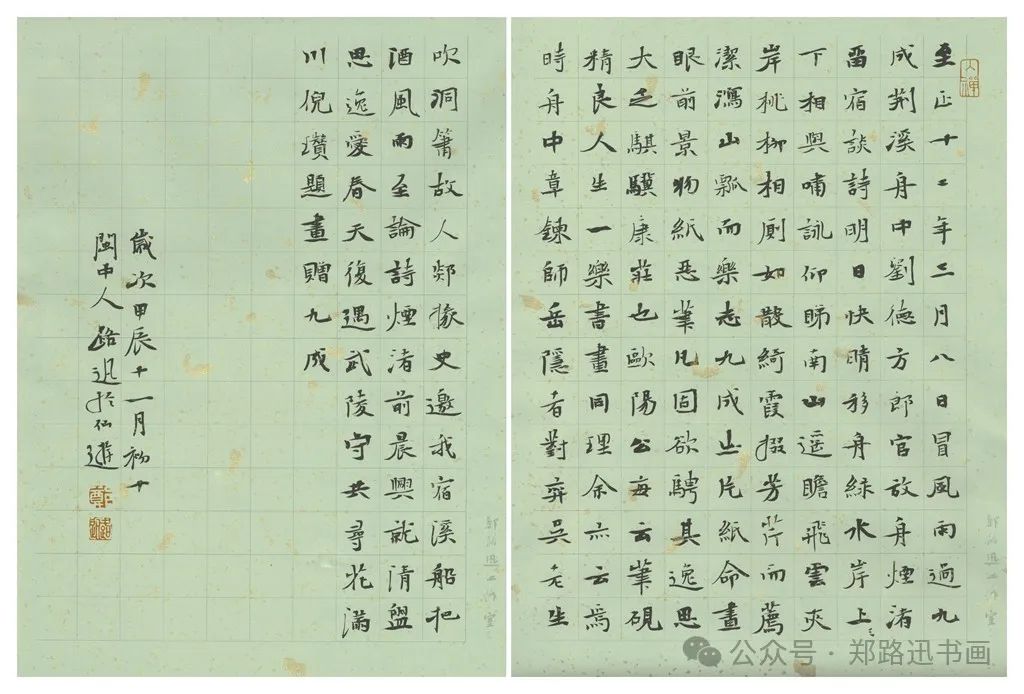 至正十二年三月八日冒風雨過九
成荆溪舟中劉德方郎官放舟煙渚
畱宿談詩明日快晴移舟綠水岸上〻
下相與嘯詠仰睇南山遥瞻飛雲夾
岸桃柳相厠如散綺霞掇芳芹而薦
潔瀉山瓢而樂志九成出片紙命畫
眼前景物紙惡筆凡固欲騁其逸思
大乏騏驥康莊也歐陽公每云筆硯
精良人生一樂書畫同理余亦云焉
時舟中章鍊師岳隱者對弈吳老生
吹洞簫故人郯掾史邀我宿溪船把
酒風雨至論詩煙渚前晨興就清盥
思逸愛春天復遇武陵守共尋花滿
川倪瓚題畫贈九成
歲次甲辰十一月初十
閩中人路迅於仙遊
鄭
公众号·郑路迅书画